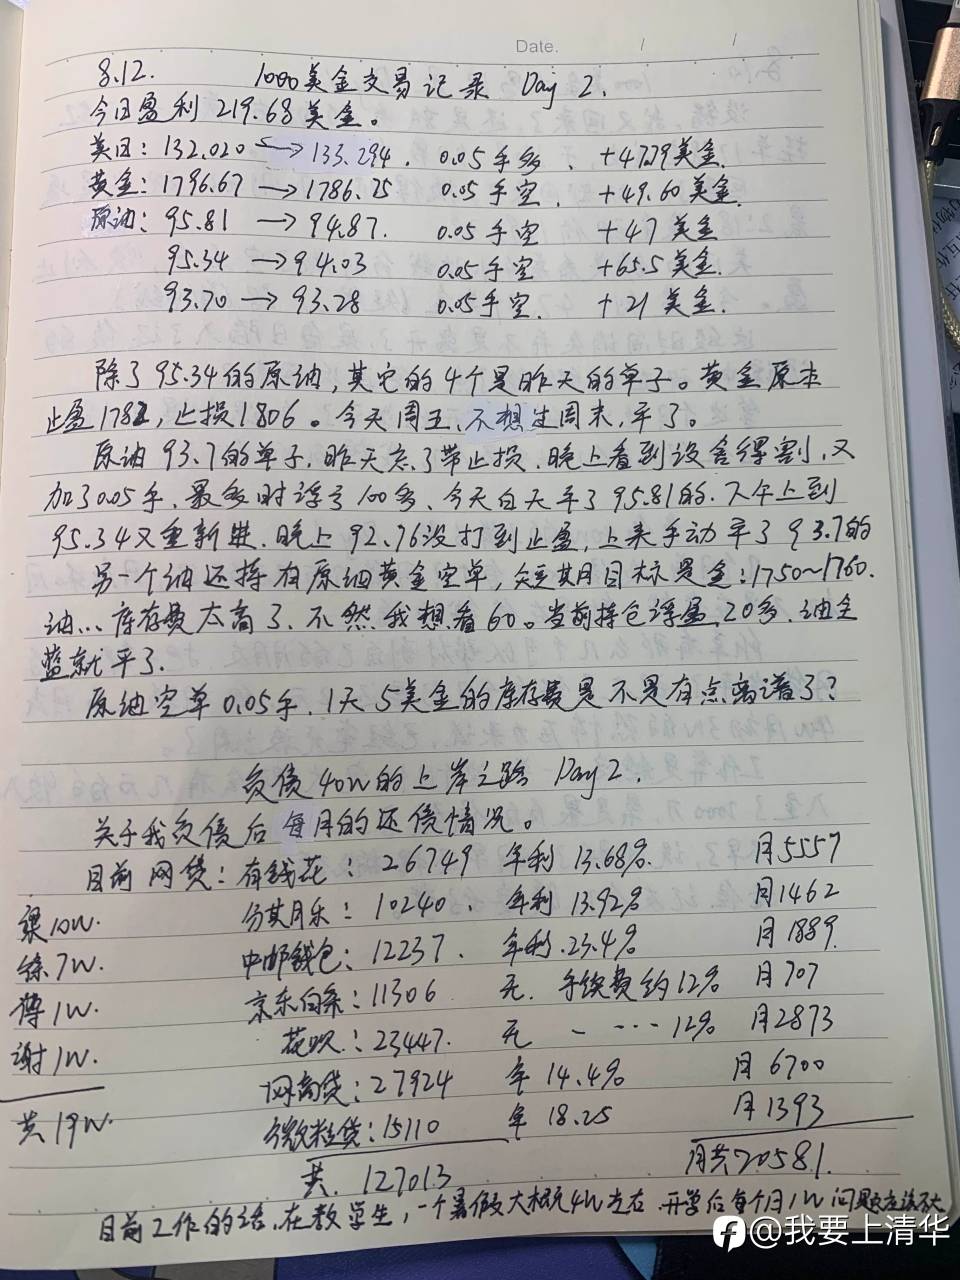 Date. / /
8.12. 1000美金交易记录 Day 2.
今日盈利 219.68美金。
美日: 132.020 → 133.294. 0.05手多. +47.79美金
黄金: 1796.67 → 1786.75 0.05手空. +49.60美金.
原油: 95.81 → 94.87. 0.05手空 +47美金
95.34 → 94.03 0.05手空 +65.5美金.
93.70 → 93.28 0.05手空. +21美金.
除了95.34的原油,其它的4个是昨天的单子。黄金原本
止盈1782,止损1806。今天周五,不想过周末,平了。
原油93.7的单子,昨天忘了带止损.晚上看到没舍得割,又
加了0.05手、最多时浮亏100多、今天白天平了95.81的.下午上到
95.34又重新进.晚上92.76没打到止盈,上来手动平了93.7的
另一个油还持有原油黄金空单,短期目标是金:1750~1760.
油…库存费太高了、不然我想看60。当前持仓浮盈20多.油全
蓝就平了.
原油空单0.05手、1天5美金的库存费是不是有点离谱了?
负债40W的上岸之路 Day 2.
关于我负债后每月的还债情况。
目前网贷: 有钱花: 26749 年利13.68%. 月5557
梁10W. 分期乐: 10240. 年利13.92% 月1462
徐7W. 中邮钱包: 12237. 年利.23.4% 月1889.
傅1W. 京东白条: 11306 无. 手续费约12% 月707
谢1W. 花呗: 23447. 无 - ···· 12% 月2873
网商贷: 27924 年14.4% 月6700
共19W. 微粒贷: 15110 年18.25 月1393
共. 127013 月共20581.
目前工作的话.在教学生,一个暑假大概4W左右.开学后每个月1W问题应该不大
@我要上清华